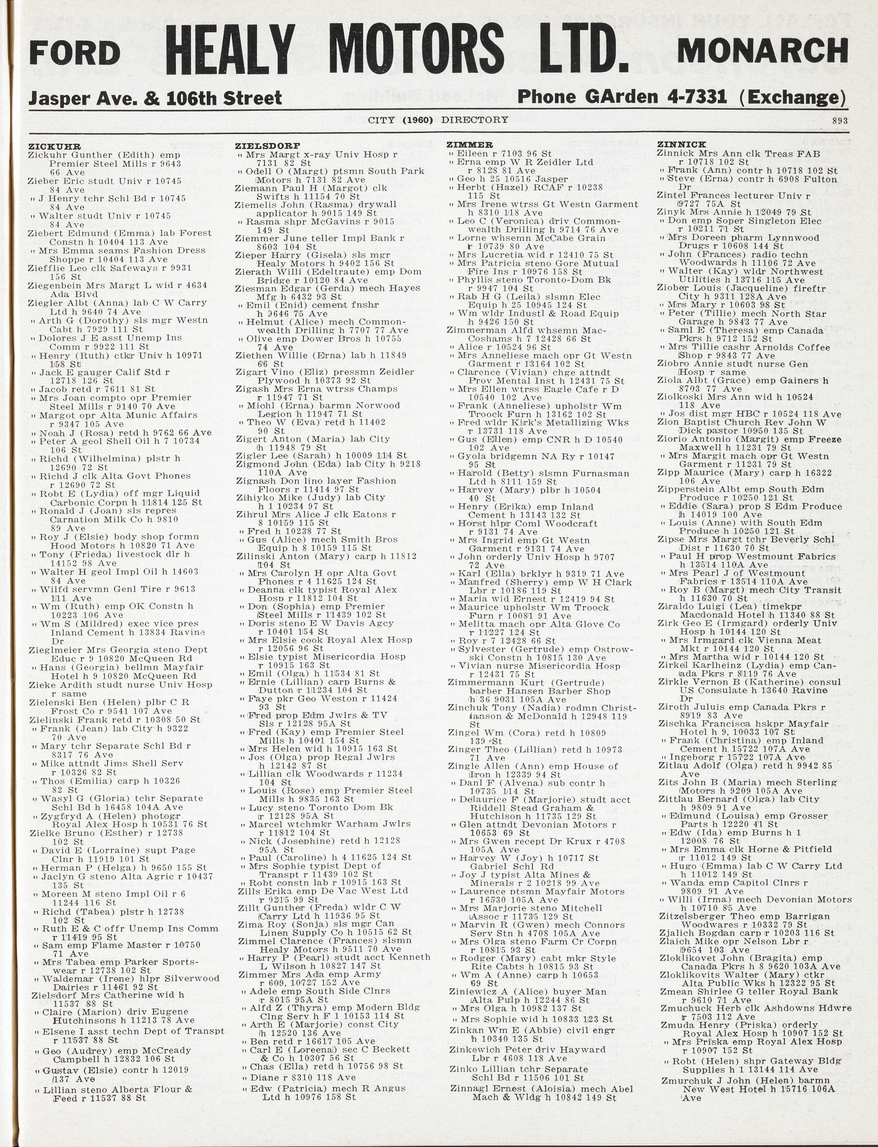 FORD HEALY MOTORS LTD. MONARCH
Jasper Ave. & 106th Street Phone GArden 4-7331 (Exchange)
CITY (1960) DIRECTORY 893
ZICKUHR
Zickuhr Gunther (Edith) emp
Premier Steel Mills r 9643
66 Ave
Zieber Eric studt Univ r 10745
84 Ave
" J Henry tchr Schl Bd r 10745
84 Ave
" Walter studt Univ r 10745
84 Ave
Ziebert Edmund (Emma) lab Forest
Constn h 10404 113 Ave
" Mrs Emma seams Fashion Dress
Shoppe r 10404 113 Ave
Ziefflie Leo clk Safeways r 9931
156 St
Ziegenbein Mrs Margt L wid r 4634
Ada Blvd
Ziegler Albt (Anna) lab C W Carry
Ltd h 9640 74 Ave
" Arth G (Dorothy) sls mgr Westn
Cabt h 7929 111 St
" Dolores J E asst Unemp Ins
Comm r 9922 111 St
" Henry (Ruth) ctkr Univ h 10971
158 St
" Jack E gauger Calif Std r
12718 126 St
" Jacob retd r 7611 81 St
" Mrs Joan compto opr Premier
Steel Mills r 9140 70 Ave
" Margot opr Alta Munic Affairs
r 9347 105 Ave
" Noah J (Rosa) retd h 9762 66 Ave
" Peter A geol Shell Oil h 7 10734
106 St
" Richd (Wilhelmina) plstr h
12690 72 St
" Richd J clk Alta Govt Phones
r 12690 72 St
" Robt E (Lydia) off mgr Liquid
Carbonic Corpn h 11814 125 St
" Ronald J (Joan) sls repres
Carnation Milk Co h 9810
89 Ave
" Roy J (Elsie) body shop formn
Hood Motors h 10820 71 Ave
" Tony (Frieda) livestock dlr h
14152 98 Ave
" Walter H geol Impl Oil h 14603
84 Ave
" Wilfd servmn Genl Tire r 9613
111 Ave
" Wm (Ruth) emp OK Constn h
10223 106 Ave
" Wm S (Mildred) exec vice pres
Inland Cement h 13834 Ravine
Dr
Zieglmeier Mrs Georgia steno Dept
Educ r 9 10820 McQueen Rd
" Hans (Georgia) bellmn Mayfair
Hotel h 9 10820 McQueen Rd
Zieke Ardith studt nurse Univ Hosp
r same
Zielenski Ben (Helen) plbr C R
Frost Co r 9541 107 Ave
Zielinski Frank retd r 10308 50 St
" Frank (Jean) lab City h 9322
70 Ave
" Mary tchr Separate Schl Bd r
8317 76 Ave
" Mike attndt Jims Shell Serv
r 10326 82 St
" Thos (Emilia) carp h 10326
82 St
" Wasyl G (Gloria) tchr Separate
Schl Bd h 16458 104A Ave
" Zygfryd A (Helen) photogr
Royal Alex Hosp h 10531 76 St
Zielke Bruno (Esther) r 12738
102 St
" David E (Lorraine) supt Page
Clnr h 11919 101 St
" Herman P (Helga) h 9650 155 St
" Jaclyn G steno Alta Agric r 10437
135 St
" Moreen M steno Impl Oil r 6
11244 116 St
" Richd (Tabea) plstr h 12738
102 St
" Ruth E & C offr Unemp Ins Comm
r 11419 95 St
" Sam emp Flame Master r 10750
71 Ave
" Mrs Tabea emp Parker Sports-
wear r 12738 102 St
" Waldemar (Irene) hlpr Silverwood
Dairies r 11461 92 St
Zielsdorf Mrs Catherine wid h
11537 88 St
" Claire (Marion) driv Eugene
Hutchinsons h 11213 78 Ave
" Elsene I asst techn Dept of Transpt
r 11537 88 St
" Geo (Audrey) emp McCready
Campbell h 12832 106 St
" Gustav (Elsie) contr h 12019
137 Ave
" Lillian steno Alberta Flour &
Feed r 11537 88 St
ZIELSDORF
" Mrs Margt x-ray Univ Hosp r
7131 82 St
" Odell O (Margt) ptsmn South Park
Motors h 7131 82 Ave
Ziemann Paul H (Margot) clk
Swifts h 11154 70 St
Ziemelis John (Rasma) drywall
applicator h 9015 149 St
" Rasma shpr McGavins r 9015
149 St
Ziemmer June teller Impl Bank r
8603 104 St
Zieper Harry (Gisela) sls mgr
Healy Motors h 9402 156 St
Zierath Willi (Edeltraute) emp Dom
Bridge r 10120 84 Ave
Ziesman Edgar (Gerda) mech Hayes
Mfg h 6432 93 St
" Emil (Enid) cement fnshr
h 9646 75 Ave
" Helmut (Alice) mech Common-
wealth Drilling h 7707 77 Ave
" Olive emp Dower Bros h 10755
74 Ave
Ziethen Willie (Erna) lab h 11849
66 St
Zigart Vino (Eliz) pressmn Zeidler
Plywood h 10373 92 St
Zigash Mrs Erna wtrss Champs
r 11947 71 St
" Michl (Erna) barmn Norwood
Legion h 11947 71 St
" Theo W (Eva) retd h 11402
90 St
Zigert Anton (Maria) lab City
h 11948 79 St
Zigler Lee (Sarah) h 10009 114 St
Zigmond John (Eda) lab City h 9218
110A Ave
Zignash Don lino layer Fashion
Floors r 11414 97 St
Zihiyko Mike (Judy) lab City
h 1 10234 97 St
Zihrul Mrs Alice J clk Eatons r
8 10159 115 St
" Fred h 10238 77 St
" Gus (Alice) mech Smith Bros
Equip h 8 10159 115 St
Zilinski Anton (Mary) carp h 11812
104 St
" Mrs Carolyn H opr Alta Govt
Phones r 4 11625 124 St
" Deanna clk typist Royal Alex
Hosp r 11812 104 St
" Don (Sophia) emp Premier
Steel Mills r 11439 102 St
" Doris steno E W Davis Agcy
r 10401 154 St
" Mrs Elsie cook Royal Alex Hosp
r 12056 96 St
" Elsie typist Misericordia Hosp
r 10915 163 St
" Emil (Olga) h 11534 81 St
" Ernie (Lillian) carp Burns &
Dutton r 11234 104 St
" Faye pkr Geo Weston r 11424
93 St
" Fred prop Edm Jwlrs & TV
Sls r 12128 95A St
" Fred (Kay) emp Premier Steel
Mills h 10401 154 St
" Mrs Helen wid h 10915 163 St
" Jos (Olga) prop Regal Jwlrs
h 12142 87 St
" Lillian clk Woodwards r 11234
104 St
" Louis (Rose) emp Premier Steel
Mills h 9835 163 St
" Lucy steno Toronto Dom Bk
r 12128 95A St
" Marcel wtchmkr Warham Jwlrs
r 11812 104 St
" Nick (Josephine) retd h 12128
95A St
" Paul (Caroline) h 4 11625 124 St
" Mrs Sophie typist Dept of
Transpt r 11439 102 St
" Robt constn lab r 10915 163 St
Zills Erika emp De Vac West Ltd
r 9215 99 St
Zillt Gunther (Freda) wldr C W
Carry Ltd h 11936 95 St
Zima Roy (Sonja) sls mgr Can
Linen Supply Co h 10515 62 St
Zimmel Clarence (Frances) slsmn
Healy Motors h 9511 70 Ave
" Harry P (Pearl) studt acct Kenneth
L Wilson h 10827 147 St
Zimmer Mrs Ada emp Army
r 609, 10727 152 Ave
" Adele emp South Side Clnrs
r 8015 95A St
" Alfd Z (Thyra) emp Modern Bldg
Clng Serv h F 1 10153 114 St
" Arth E (Marjorie) const City
h 12520 136 Ave
" Ben retd r 16617 105 Ave
" Carl E (Loreena) sec C Beckett
& Co h 10307 56 St
" Chas (Ella) retd h 10756 98 St
" Diane r 8310 118 Ave
" Edw (Patricia) mech R Angus
Ltd h 10976 158 St
ZIMMER
" Eileen r 7103 96 St
" Erna emp W R Zeidler Ltd
r 8128 81 Ave
" Geo h 25 10516 Jasper
" Herbt (Hazel) RCAF r 10238
115 St
" Mrs Irene wtrss Gt Westn Garment
h 8310 118 Ave
" Leo C (Veronica) driv Common-
wealth Drilling h 9714 76 Ave
" Lorne whsemn McCabe Grain
r 10739 80 Ave
" Mrs Lucretia wid r 12410 75 St
" Mrs Patricia steno Gore Mutual
Fire Ins r 10976 158 St
" Phyllis steno Toronto-Dom Bk
r 9947 104 St
" Rab H G (Leila) slsmn Elec
Equip h 25 10945 124 St
" Wm wldr Industl & Road Equip
h 9426 150 St
Zimmerman Alfd whsemn Mac-
Coshams h 7 12428 66 St
" Alice r 10524 96 St
" Mrs Anneliese mach opr Gt Westn
Garment r 13164 102 St
" Clarence (Vivian) chge attndt
Prov Mental Inst h 12431 75 St
" Mrs Ellen wtrss Eagle Cafe r D
10540 102 Ave
" Frank (Anneliese) upholstr Wm
Troock Furn h 13162 102 St
" Fred wldr Kirk's Metallizing Wks
r 13731 118 Ave
" Gus (Ellen) emp CNR h D 10540
102 Ave
" Gyola bridgemn NA Ry r 10147
95 St
" Harold (Betty) slsmn Furnasman
Ltd h 8111 159 St
" Harvey (Mary) plbr h 10504
40 St
" Henry (Erika) emp Inland
Cement h 13143 132 St
" Horst hlpr Coml Woodcraft
r 9131 74 Ave
" Mrs Ingrid emp Gt Westn
Garment r 9131 74 Ave
" John orderly Univ Hosp h 9707
72 Ave
" Karl (Ella) brklyr h 9319 71 Ave
" Manfred (Sherry) emp W H Clark
Lbr r 10186 119 St
" Maria wid Ernest r 12419 94 St
" Maurice upholstr Wm Troock
Furn r 10081 91 Ave
" Melitta mach opr Alta Glove Co
r 11227 124 St
" Roy r 7 12428 66 St
" Sylvester (Gertrude) emp Ostrow-
ski Constn h 10815 130 Ave
" Vivian nurse Misericordia Hosp
r 12431 75 St
Zimmermann Kurt (Gertrude)
barber Hansen Barber Shop
h 36 9031 105A Ave
Zinchuk Tony (Nadia) rodmn Christ-
ianson & McDonald h 12948 119
St
Zingel Wm (Cora) retd h 10809
139 St
Zinger Theo (Lillian) retd h 10973
71 Ave
Zingle Allen (Ann) emp House of
Iron h 12339 94 St
" Danl F (Alvena) sub contr h
10735 114 St
" Delaurice F (Marjorie) studt acct
Riddell Stead Graham &
Hutchison h 11735 129 St
" Glen attndt Devonian Motors r
10653 69 St
" Mrs Gwen recept Dr Krux r 4708
105A Ave
" Harvey W (Joy) h 10717 St
Gabriel Schl Rd
" Joy J typist Alta Mines &
Minerals r 2 10218 99 Ave
" Laurence ptsmn Mayfair Motors
r 16530 105A Ave
" Mrs Marjorie steno Mitchell
Assoc r 11735 129 St
" Marvin R (Gwen) mech Connors
Serv Stn h 4708 105A Ave
" Mrs Olga steno Farm Cr Corpn
r 10815 93 St
" Rodger (Mary) cabt mkr Style
Rite Cabts h 10815 93 St
" Wm A (Anne) carp h 10653
69 St
Ziniewicz A (Alice) buyer Man
Alta Pulp h 12244 86 St
" Mrs Olga h 10982 137 St
" Mrs Sophie wid h 10833 123 St
Zinkan Wm E (Abbie) civil engr
h 10340 135 St
Zinkewich Peter driv Hayward
Lbr r 4608 118 Ave
Zinko Lillian tchr Separate
Schl Bd r 11506 101 St
Zinnagl Ernest (Aloisia) mech Abel
Mach & Wldg h 10842 149 St
ZINNICK
Zinnick Mrs Ann clk Treas FAB
r 10718 102 St
" Frank (Ann) contr h 10718 102 St
" Steve (Erna) contr h 6908 Fulton
Dr
Zintel Frances lecturer Univ r
9727 75A St
Zinyk Mrs Annie h 12049 79 St
" Don emp Soper Singleton Elec
r 10211 71 St
" Mrs Doreen pharm Lynnwood
Drugs r 10608 144 St
" John (Frances) radio techn
Woodwards h 11106 72 Ave
" Walter (Kay) wldr Northwest
Utilities h 13716 115 Ave
Ziober Louis (Jacqueline) fireftr
City h 9311 128A Ave
" Mrs Mary r 10603 98 St
" Peter (Tillie) mech North Star
Garage h 9843 77 Ave
" Saml E (Theresa) emp Canada
Pkrs h 9712 152 St
" Mrs Tillie cashr Arnolds Coffee
Shop r 9843 77 Ave
Ziobro Annie studt nurse Gen
Hosp r same
Ziola Albt (Grace) emp Gainers h
8703 77 Ave
Ziolkoski Mrs Ann wid h 10524
118 Ave
" Jos dist mgr HBC r 10524 118 Ave
Zion Baptist Church Rev John W
Dick pastor 10950 135 St
Ziorio Antonio (Margit) emp Freeze
Maxwell h 11231 79 St
" Mrs Margit mach opr Gt Westn
Garment r 11231 79 St
Zipp Maurice (Mary) carp h 16322
106 Ave
Zipperstein Albt emp South Edm
Produce r 10250 121 St
" Eddie (Sara) prop S Edm Produce
h 14019 100 Ave
" Louis (Anne) with South Edm
Produce h 10250 121 St
Zipse Mrs Margt tchr Beverly Schl
Dist r 11630 70 St
" Paul H prop Westmount Fabrics
h 13514 110A Ave
" Mrs Pearl J of Westmount
Fabrics r 13514 110A Ave
" Roy B (Margt) mech City Transit
h 11630 70 St
Ziraldo Luigi (Lea) timekpr
Macdonald Hotel h 11340 88 St
Zirk Geo E (Irmgard) orderly Univ
Hosp h 10144 120 St
" Mrs Irmgard clk Vienna Meat
Mkt r 10144 120 St
" Mrs Martha wid r 10144 120 St
Zirkel Karlheinz (Lydia) emp Can-
ada Pkrs r 8119 76 Ave
Zirkle Vernon B (Katherine) consul
US Consulate h 13640 Ravine
Dr
Ziroth Juluis emp Canada Pkrs r
8919 83 Ave
Zischka Francisca hskpr Mayfair
Hotel h 9, 10033 107 St
" Frank (Christina) emp Inland
Cement h 15722 107A Ave
" Ingeborg r 15722 107A Ave
Zitlau Adolf (Olga) retd h 9942 85
Ave
Zits John B (Maria) mech Sterling
Motors h 9209 105A Ave
Zittlau Bernard (Olga) lab City
h 9809 91 Ave
" Edmund (Louisa) emp Grosser
Parts h 12220 41 St
" Edw (Ida) emp Burns h 1
12008 76 St
" Mrs Emma clk Horne & Pitfield
r 11012 149 St
" Hugo (Emma) lab C W Carry Ltd
h 11012 149 St
" Wanda emp Capitol Clnrs r
9809 91 Ave
" Willi (Irma) mech Devonian Motors
h 10710 85 Ave
Zitzelsberger Theo emp Barrigan
Woodwares r 10332 79 St
Zjalich Bogdan carp r 10203 116 St
Zlaich Mike opr Nelson Lbr r
9654 103 Ave
Zloklikovet John (Bragita) emp
Canada Pkrs h 8 9620 103A Ave
Zloklikovits Walter (Mary) ctkr
Alta Public Wks h 12322 95 St
Zmean Shirlee G teller Royal Bank
r 9610 71 Ave
Zmuchuck Herb clk Ashdowns Hdwre
r 7503 112 Ave
Zmuda Henry (Priska) orderly
Royal Alex Hosp h 10907 152 St
" Mrs Priska emp Royal Alex Hosp
r 10907 152 St
" Robt (Helen) shpr Gateway Bldg
Supplies h 1 13144 114 Ave
Zmurchuk J John (Helen) barmn
New West Hotel h 15716 106A
Ave